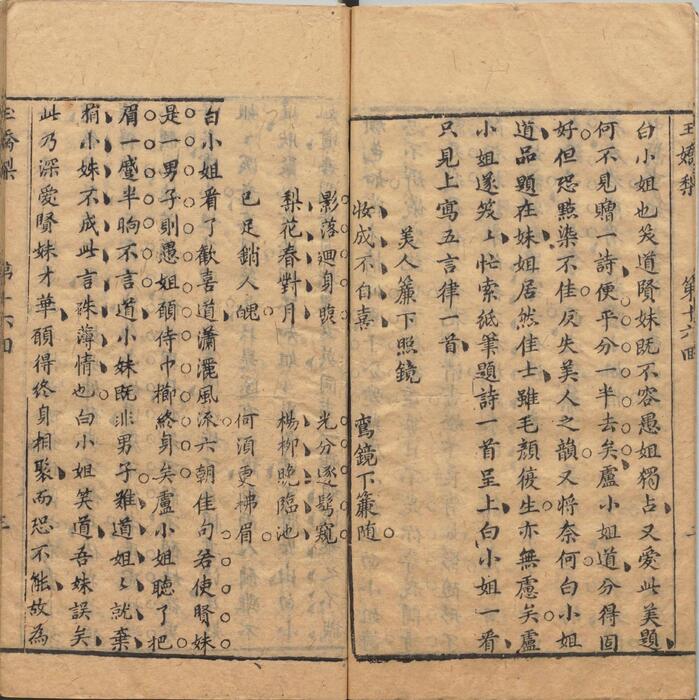 玉嬌梨 第十六回
白小姐也笑道賢妹既不容愚姐獨占又愛此美題
何不見贈一詩便平分一半去矣盧小姐道分得固
好但恐點染不佳反失美人之韻又將奈何白小姐
道品題在妹姐居然佳士雖毛顏復生亦無慮矣盧
小姐遂笑〻忙索紙筆題詩一首呈上白小姐一看
只見上寫五言律一首
美人簾下照鏡
妝成不自喜 鸞鏡下簾随
影落廻身 光分逐髩窺
梨花春對月 楊柳晚臨池
已足銷人魄 何須更拂眉
白小姐看了歡喜道瀟灑風流六朝佳句若使賢妹
是一男子則愚姐願侍巾櫛終身矣盧小姐聽了把
眉一蹙半晌不言道小妹既非男子難道姐〻就棄
捐小妹不成此言殊薄情也白小姐笑道吾妹誤矣
此乃深愛賢妹才華願得終身相聚而恐不能故為
玉嬌梨 第十六回